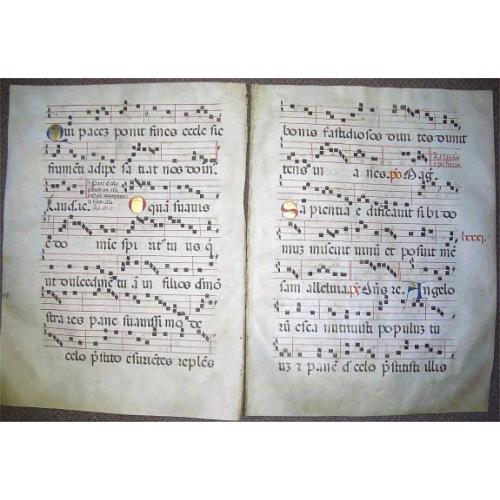 Qui pacez ponit fines eccle sie
frumenti adipe sa tiat nos dn̄s.
laudie. O quā suavis
e do mie spi rit tu us q̄
ut dulcedinē tu ā in filios dēmō
stra res pane suavissi mo de
celo p̄stito esurietes reples
bonis fastidiosos divi tes dimit
tens in a nes. p̄s Mag
Sa pientia e dificavit si bi do
lxxxj.
muz miscuit vinū et posuit mē
sam alleluia. p̄s Dn̄s re. Angelo
rū esca nutrivisti populuz tu
uz z panē d celo p̄stitisti illis